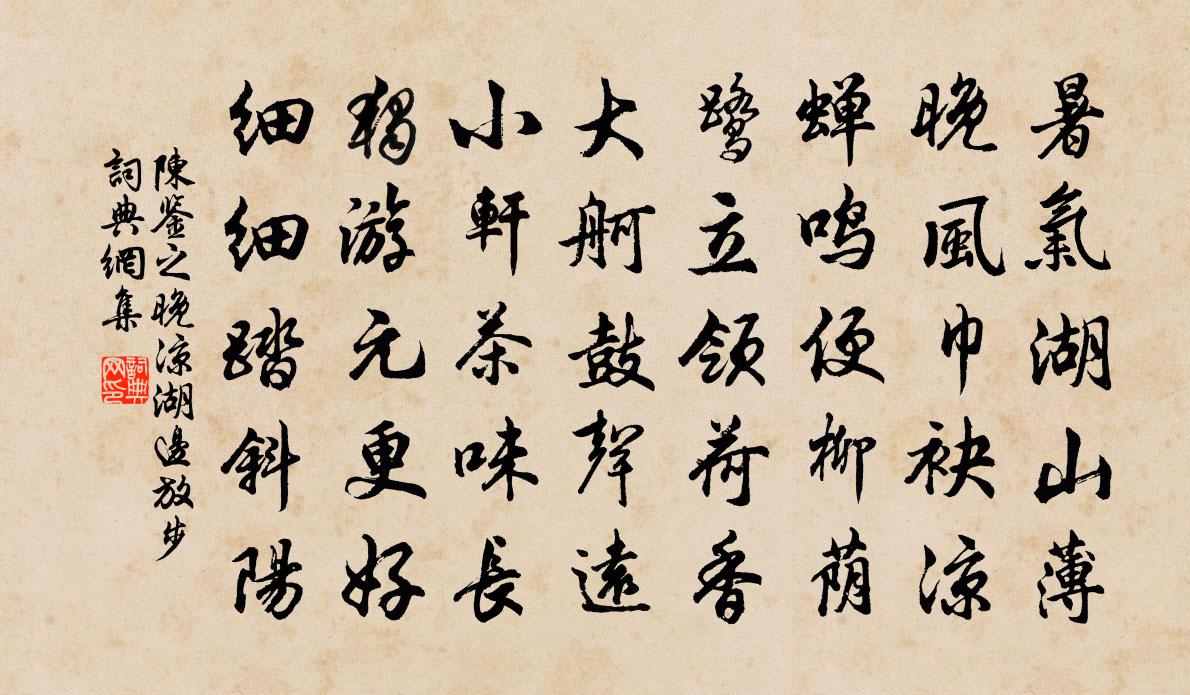 暑氣湖山薄
晚風巾袂涼
蝉鳴便柳荫
鹭立领荷香
大舸鼓聲遠
小軒茶味長
獨游元更好
细细踏斜陽
陳鉴之晚涼湖邊放步
詞典網集
詞典
网印